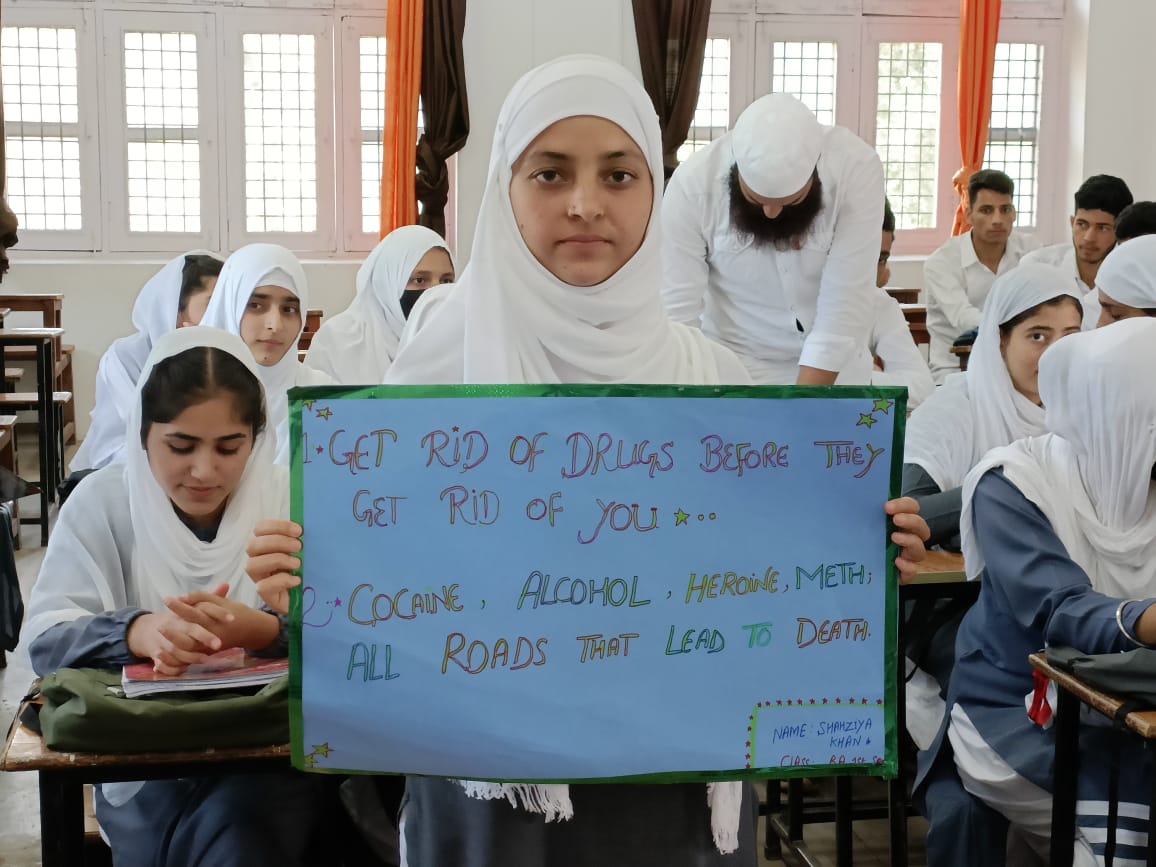 1. GET RID OF DRUGS BEFORE THEY
GET RID OF YOU...
2. COCAINE, ALCOHOL, HEROINE, METH;
ALL ROADS THAT LEAD TO DEATH.
NAME: SHAHZIYA
KHAN
CLASS: BA 1st